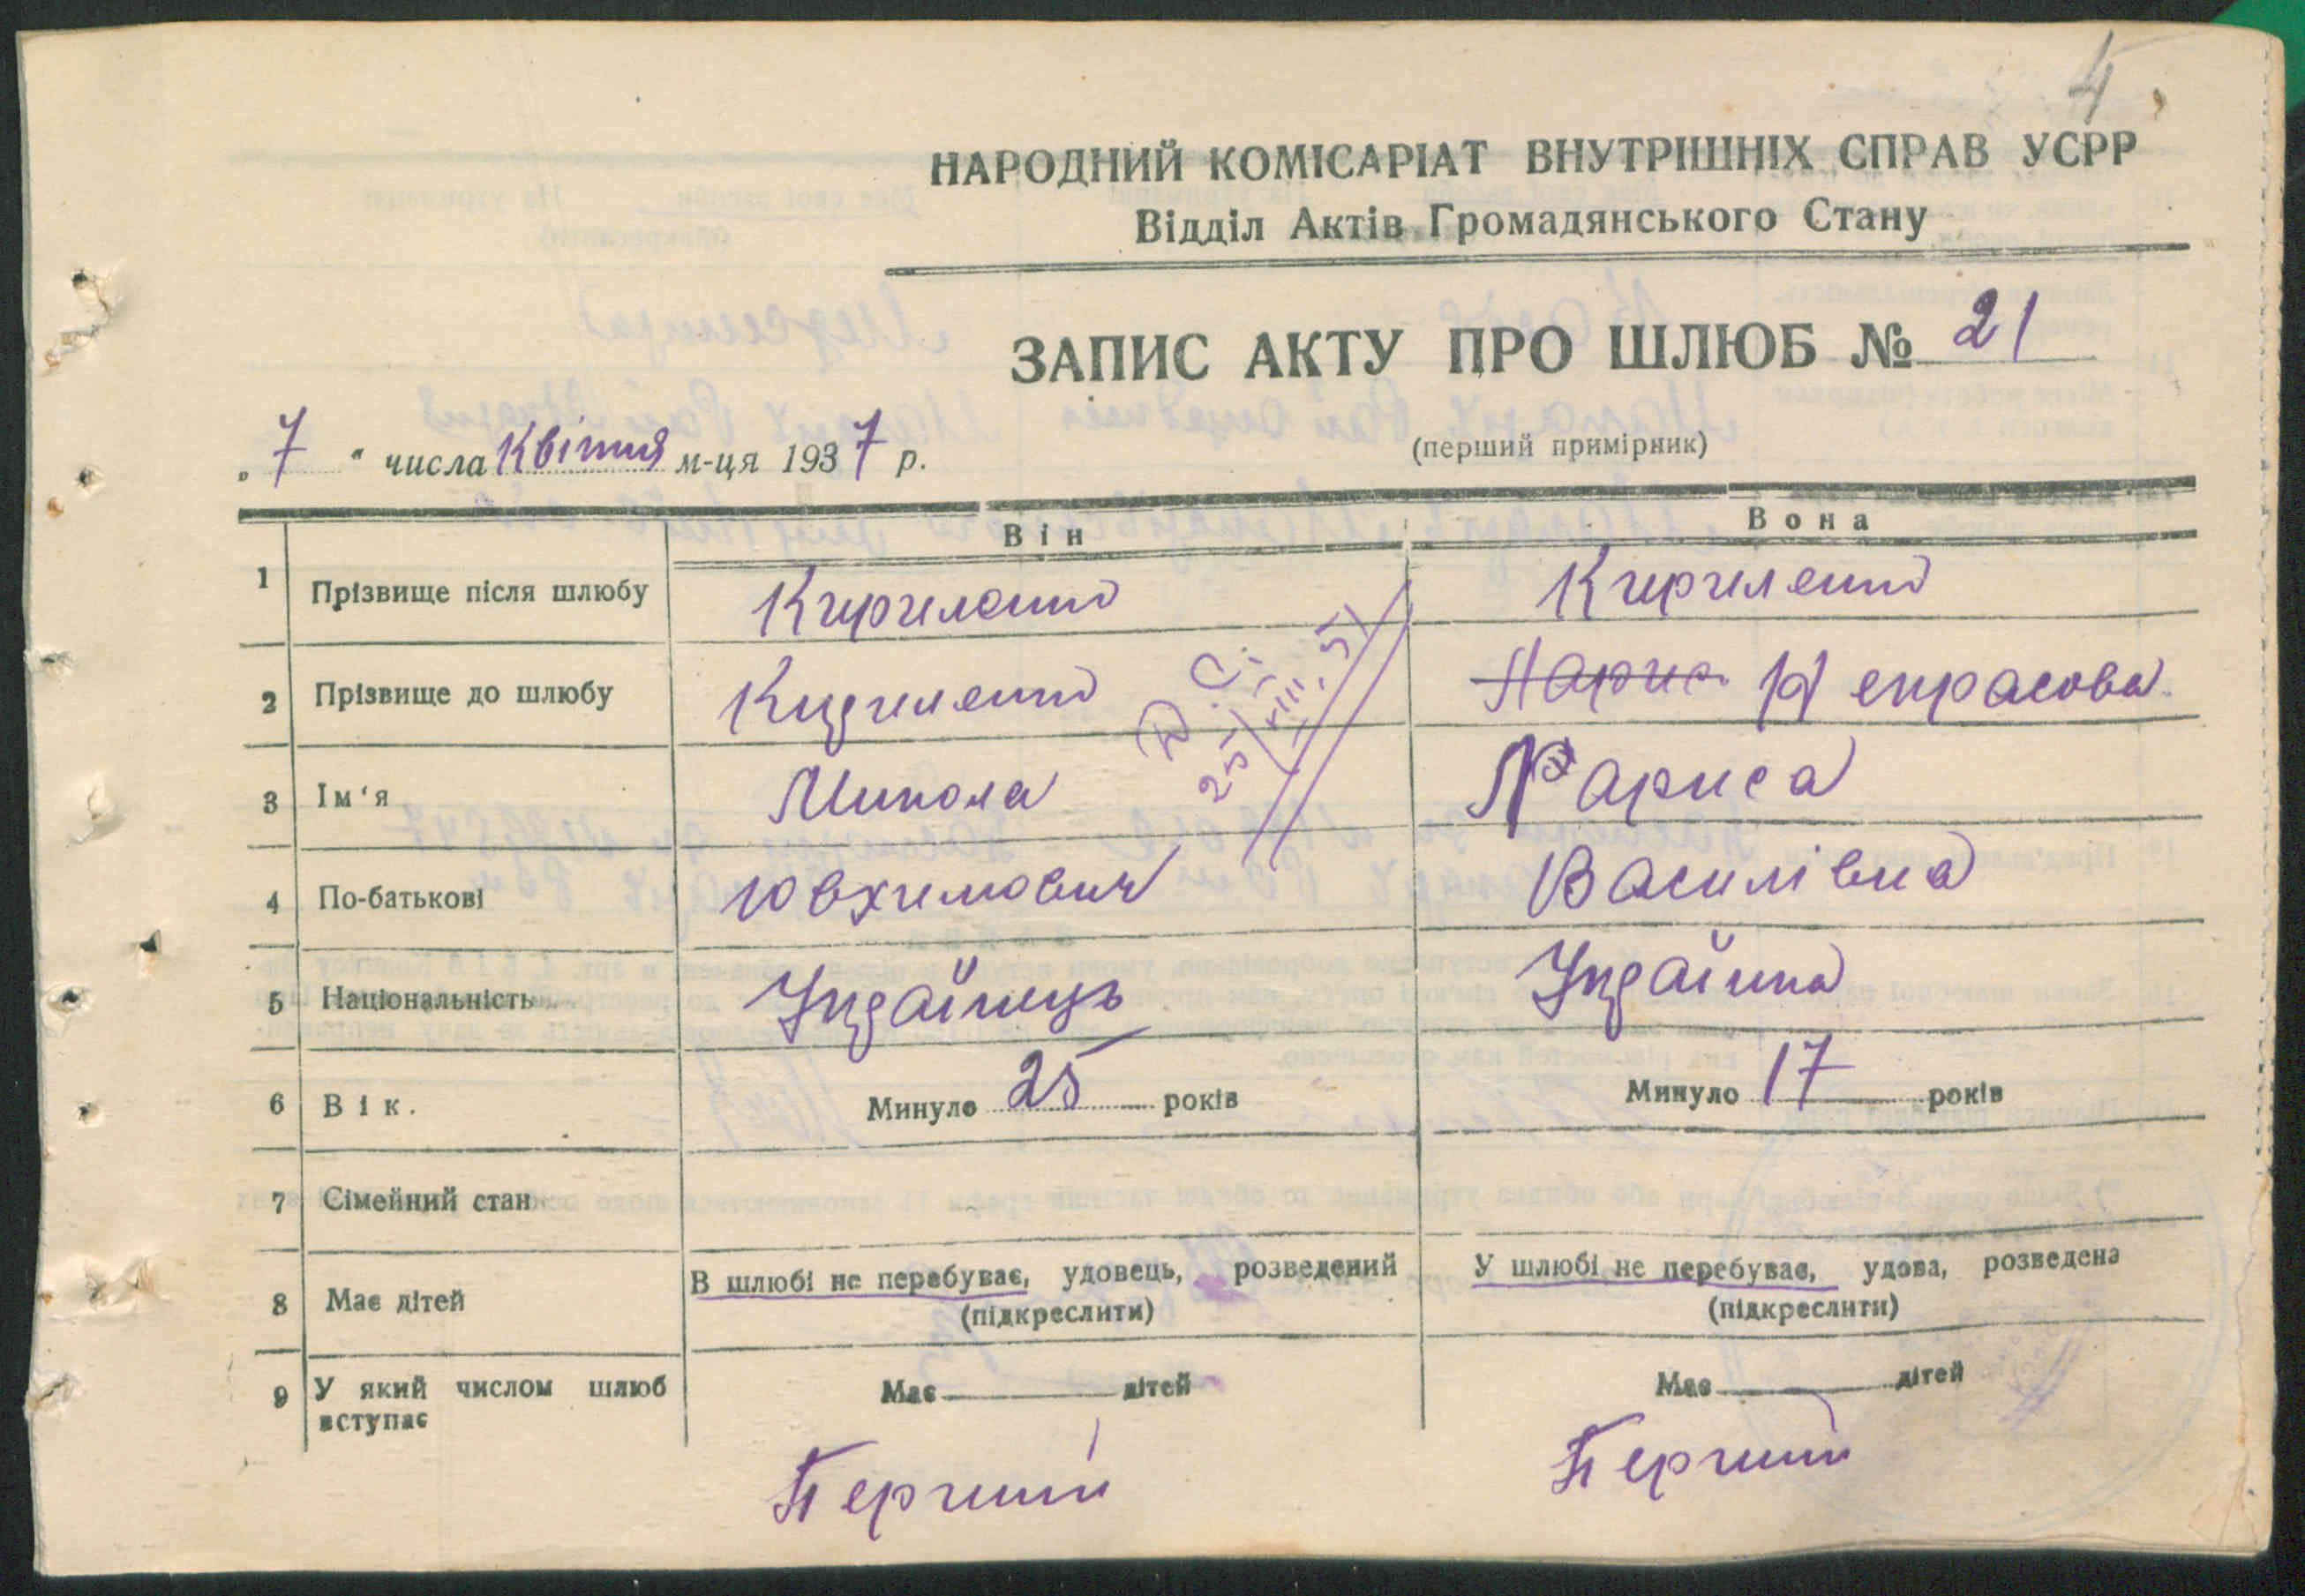 4
НАРОДНИЙ КОМІСАРІАТ ВНУТРІШНІХ СПРАВ УСРР
Відділ Актів Громадянського Стану
ЗАПИС АКТУ ПРО ШЛЮБ № 21
(перший примірник)
„ 7 “ числа Квітня м-ця 1937 р.
Він Вона
1 Прізвище після шлюбу Кириленко Кириленко
2 Прізвище до шлюбу Кириленко Ларис Некрасова
3 Ім‘я Микола Лариса
4 По-батькові Ювхимович Василівна
5 Національність Українець Українка
6 Вік. Минуло 25 років Минуло 17 років
7 Сімейний стан
8 Має дітей В шлюбі не перебуває, удовець, розведений У шлюбі не перебуває, удова, розведена
(підкреслити) (підкреслити)
9 У який числом шлюб вступає Має дітей Має дітей
Перший Перший
25/VIII.51